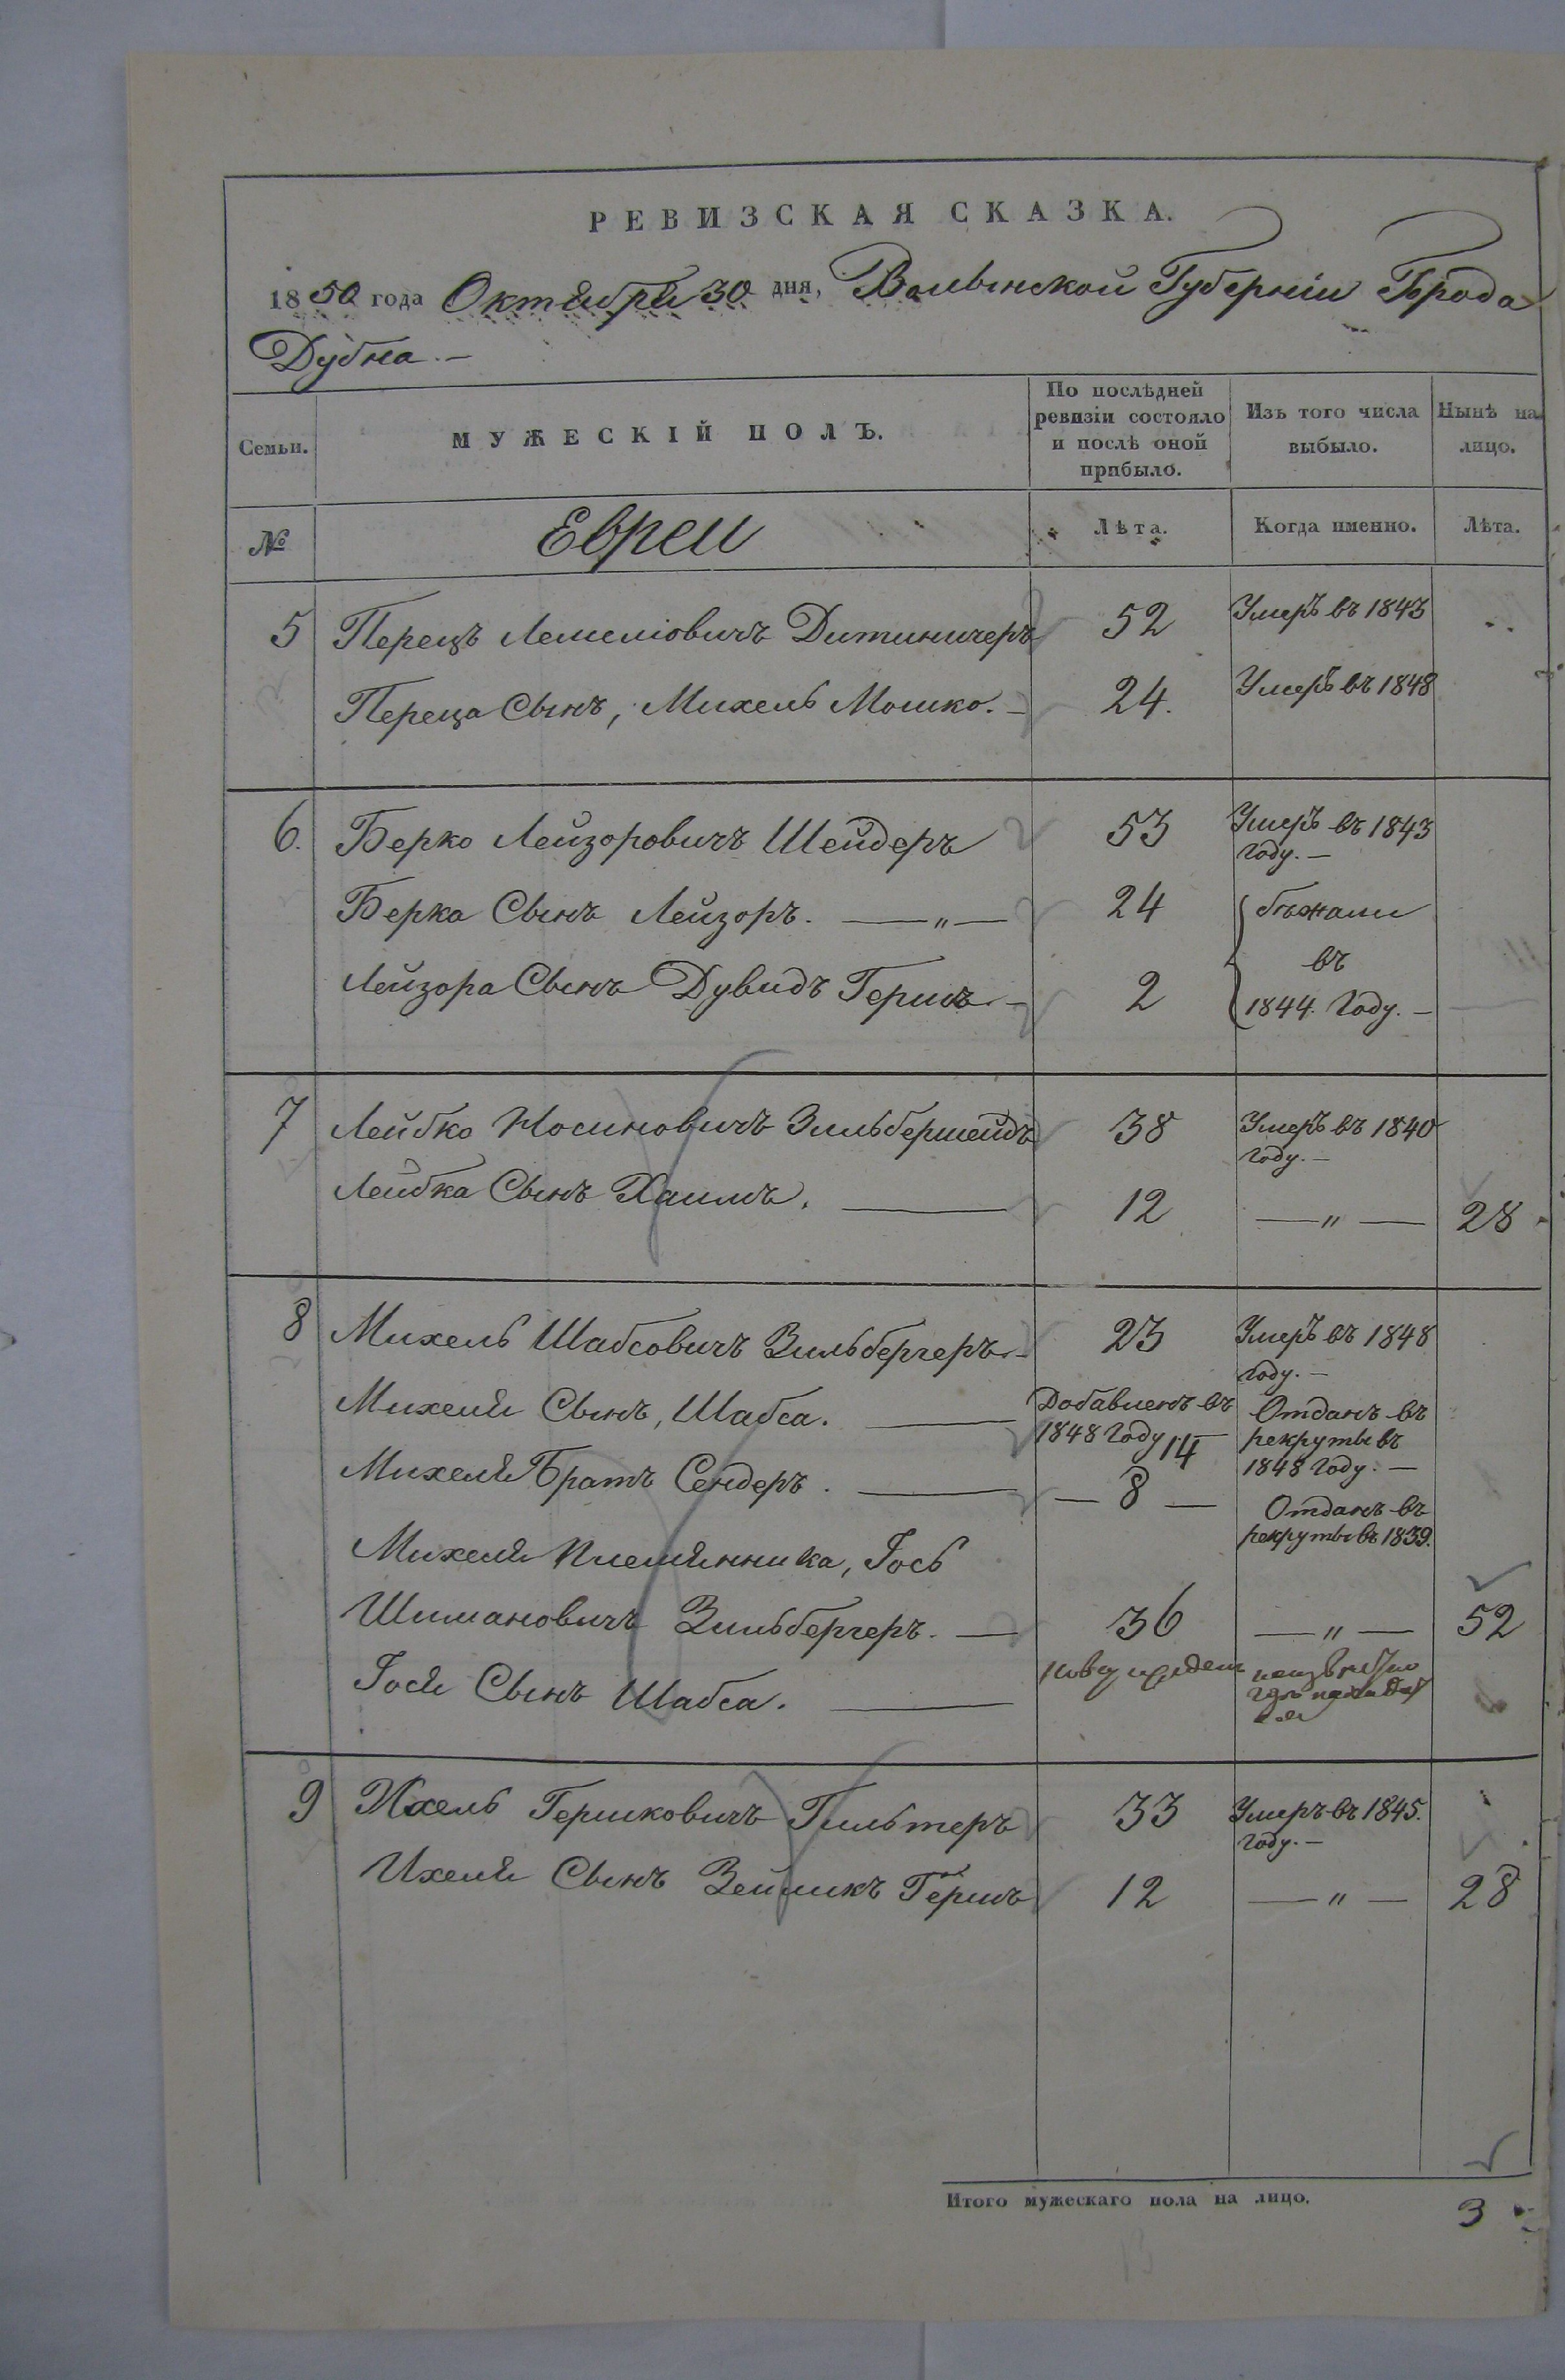 РЕВИЗСКАЯ СКАЗКА.
1850 года Октября 30 дня, Волынской Губерніи Города
Дубна.—
Семьи.
МУЖЕСКІЙ ПОЛЪ.
По послѣдней
ревизіи состояло
и послѣ оной
прибыло.
Изъ того числа
выбыло.
Нынѣ на
лицо.
№
Евреи
Лѣта.
Когда именно.
Лѣта.
5 Перецъ Лемеліовичъ 52 Умеръ въ 1843
Переца Сынъ, Михель Мошко.— 24. Умеръ въ 1848
6. Берко Лейзоровичъ Шейдеръ 53 Умеръ въ 1843
году.—
Берка Сынъ Лейзоръ. —„— 24 бѣжали
въ
Лейзора Сынъ Дувидъ Гершъ.— 2 1844. Году.—
7 Лейбко Носиновичъ Зильбершейдъ 38 Умеръ въ 1840
году.—
Лейбка Сынъ Хаимъ. — 12 —„— 28
8 Михель Шабсовичъ Зильбергеръ.— 23 Умеръ въ 1848
году.—
Михеля Сынъ, Шабса. — Добавленъ въ
1848 Году 14 Отданъ въ
рекруты въ
1848 Году.—
Михеля Братъ Сендеръ. — — 8 — Отданъ въ
рекруты въ 1839.
Михеля племянника, Гось
Шимановичъ Зильбергеръ.— 36 —„— 52
Гося Сынъ Шабса. — неизвѣстно
гдѣ
9 Ихель Гершковичъ Гильтеръ 33 Умеръ въ 1845.
году.—
Ихеля Сынъ Зейликъ Гершъ 12 —„— 28
Итого мужескаго пола на лицо. 3